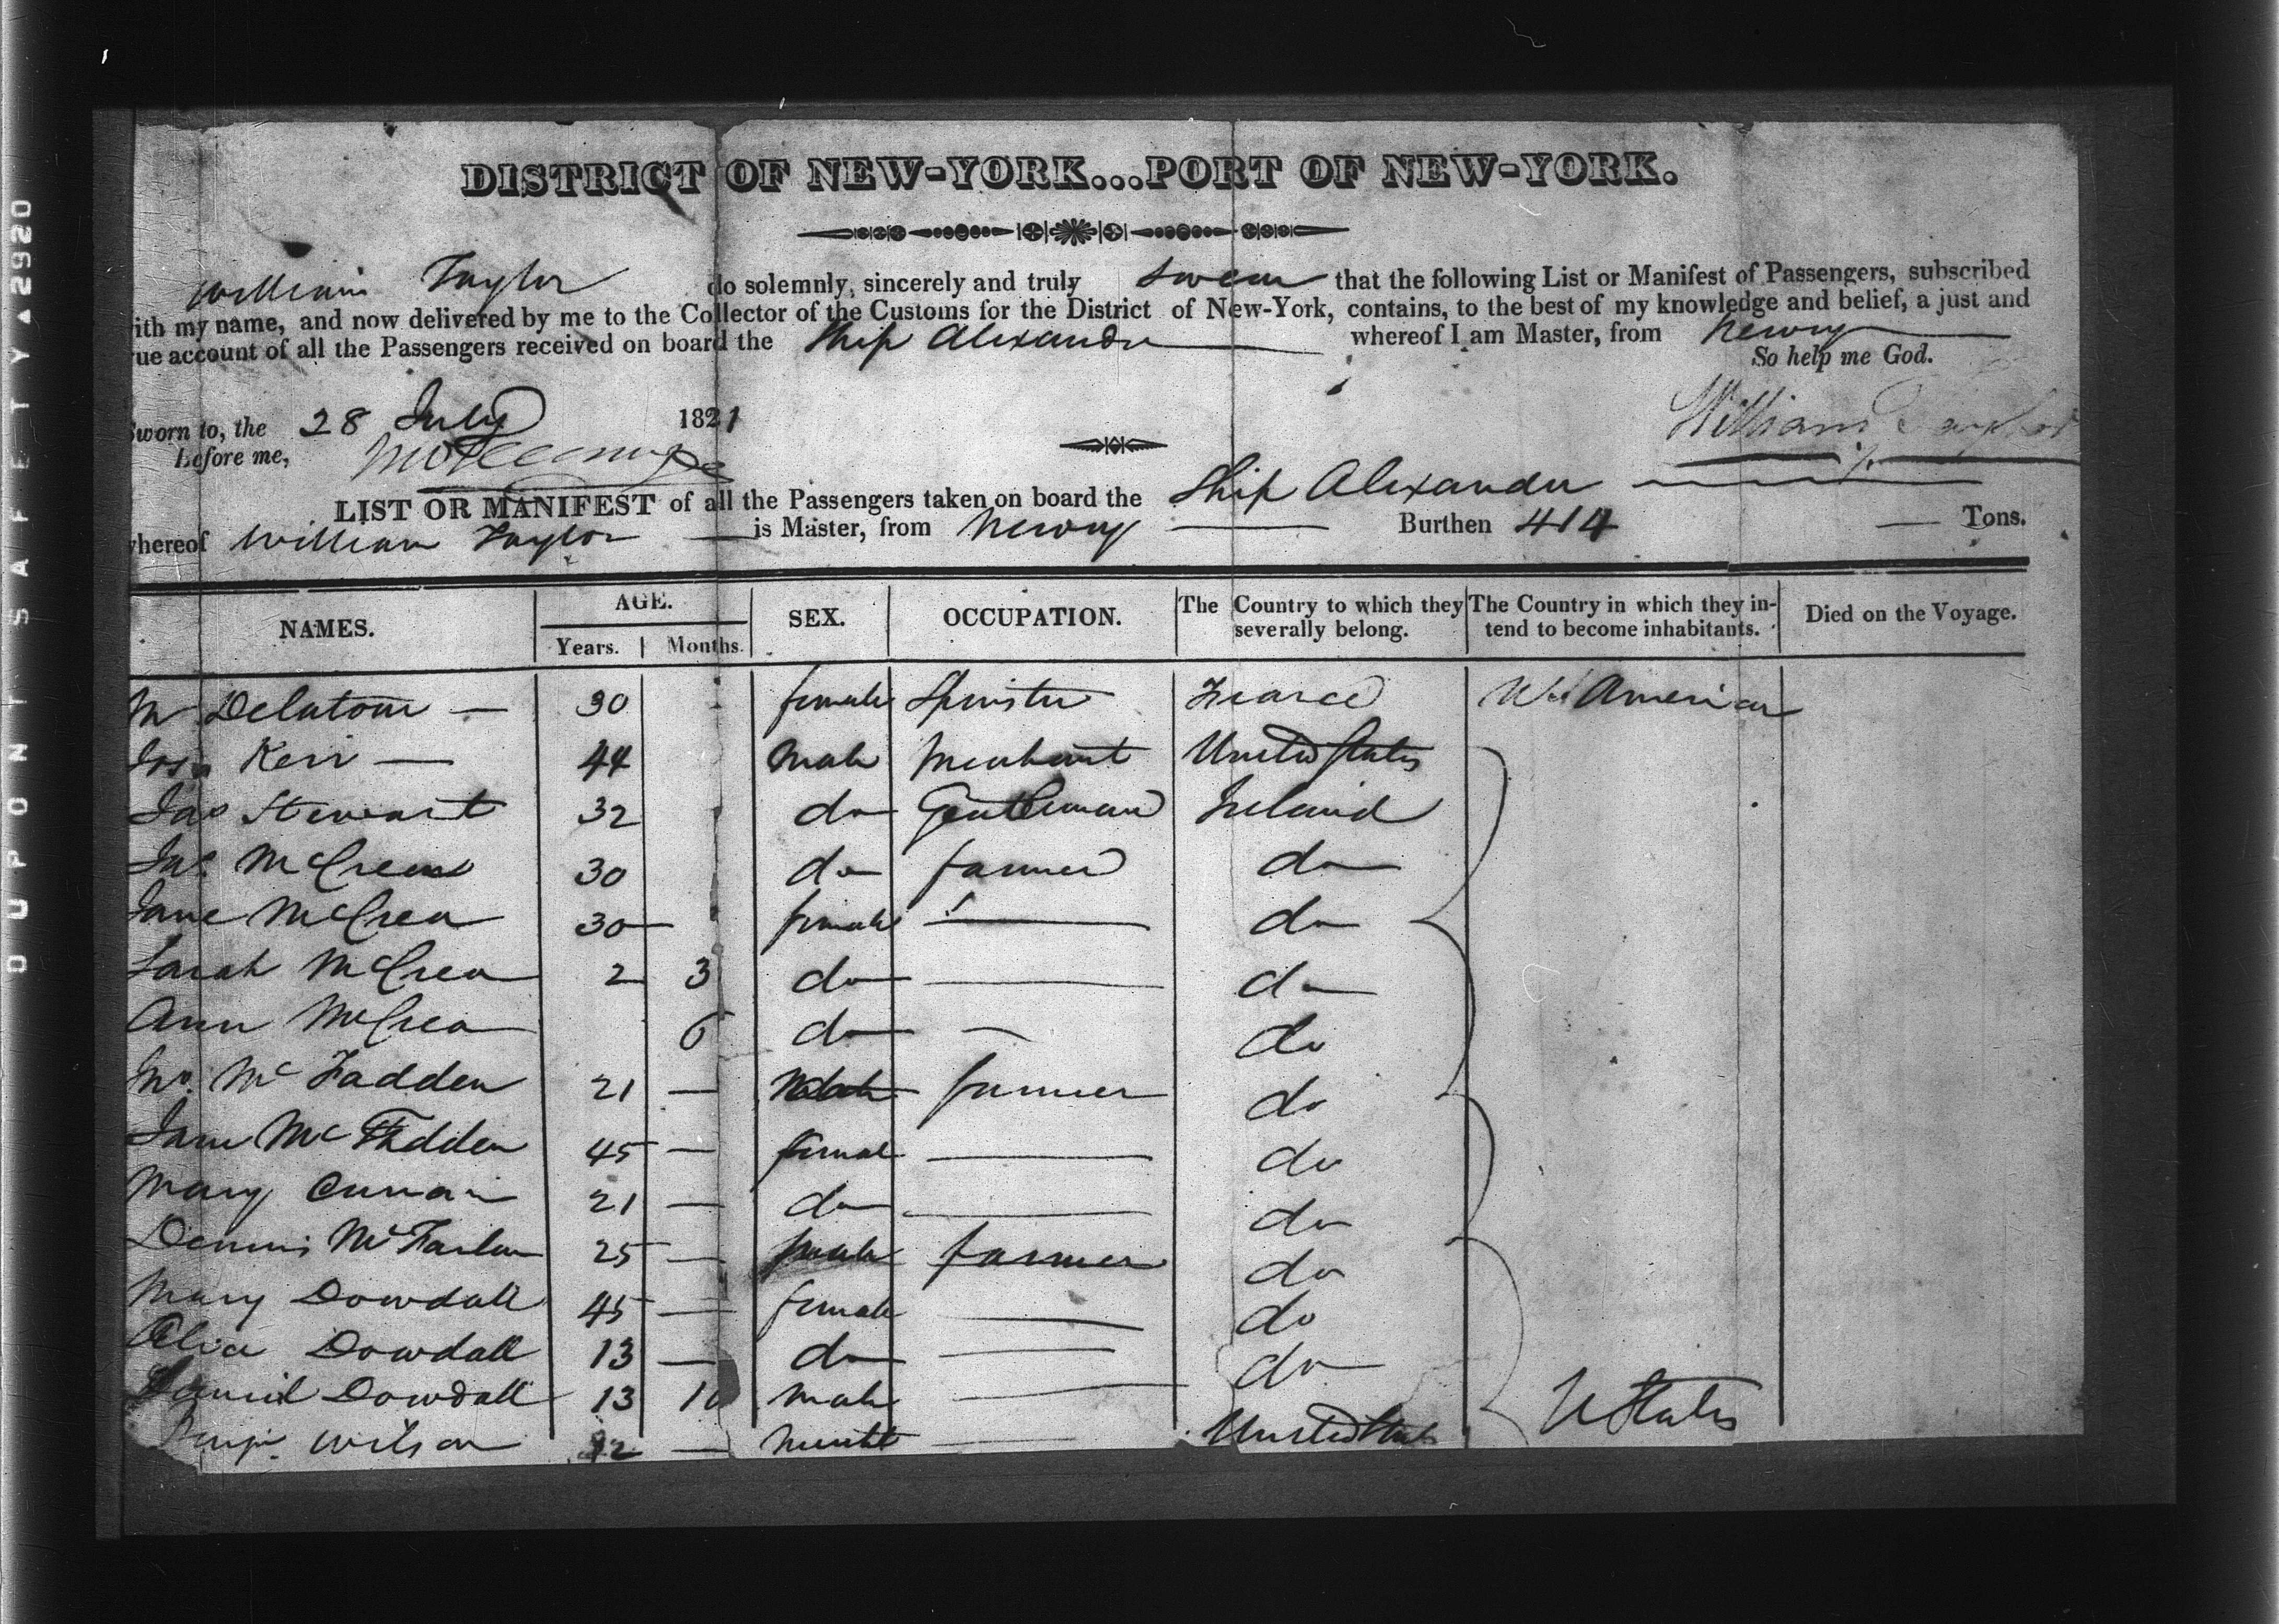 DUPONT SAFETY ▲2920
DISTRICT OF NEW-YORK...PORT OF NEW-YORK.
William Taylor do solemnly, sincerely and truly swear that the following List or Manifest of Passengers, subscribed
ith my name, and now delivered by me to the Collector of the Customs for the District of New-York, contains, to the best of my knowledge and belief, a just and
ue account of all the Passengers received on board the Ship Alexander whereof I am Master, from Newry
So help me God.
Sworn to, the 28 July 1821
William Taylor
before me,
LIST OR MANIFEST of all the Passengers taken on board the Ship Alexander
whereof William Taylor is Master, from Newry Burthen 414 Tons.
NAMES. AGE. Years. Months. SEX. OCCUPATION. The Country to which they severally belong. The Country in which they intend to become inhabitants. Died on the Voyage.
M 30 female Spinster America
Kerr 44 male Merchant United States
Jas Stewart 32 do Gentleman Ireland
Jas. McCrea 30 do farmer do
Jane McCrea 30 female do
Sarah McCrea 2 3 do do
Ann McCrea 6 do do
Jno. Mc Fadden 21 — Male farmer do
Jane Mc Fadden 45 — female do
Mary Curran 21 — do do
Dennis McFarlan 25 — male farmer do
Mary Dowdall 45 — female do
Alice Dowdall 13 — do do
Dowdall 13 10 male
Benjn. Wilson — United States U States